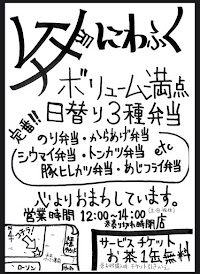 にわふく
ボリューム満点
日替り3種弁当
定番!!
のり弁当・からあげ弁当
シウマイ弁当・トンカツ弁当 etc
豚ヒレカツ弁当・あじフライ弁当
心よりおまちしています。
営業時間 12:00~14:00
売り切れ時閉店
サービスチケット
お茶1缶無料
ココ!
ローソン